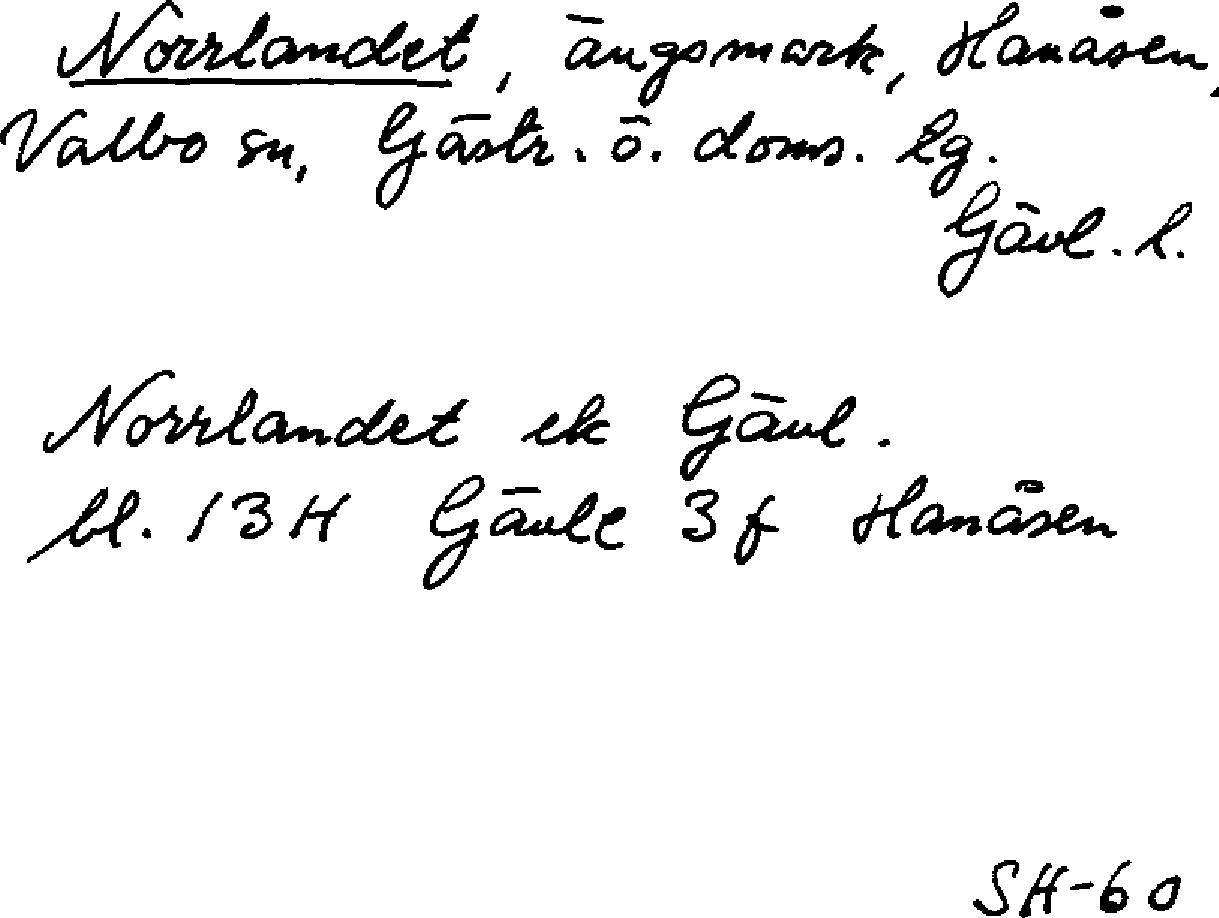 Norrlandet, ängsmark, Hanåsen,
Valbo sn, Gästr. ö. doms. lg.
Gävl. l.
Norrlandet ek Gävl.
bl. 13H Gävle 3f Hanåsen
SH-60